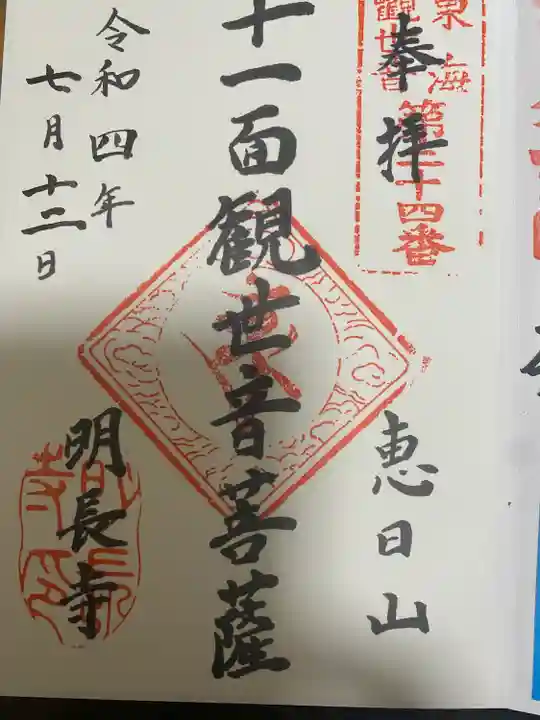 奉拝
東海
觀世音
第三十四番
恵日山
十一面観世音菩薩
明長寺
令和四年
七月十二日